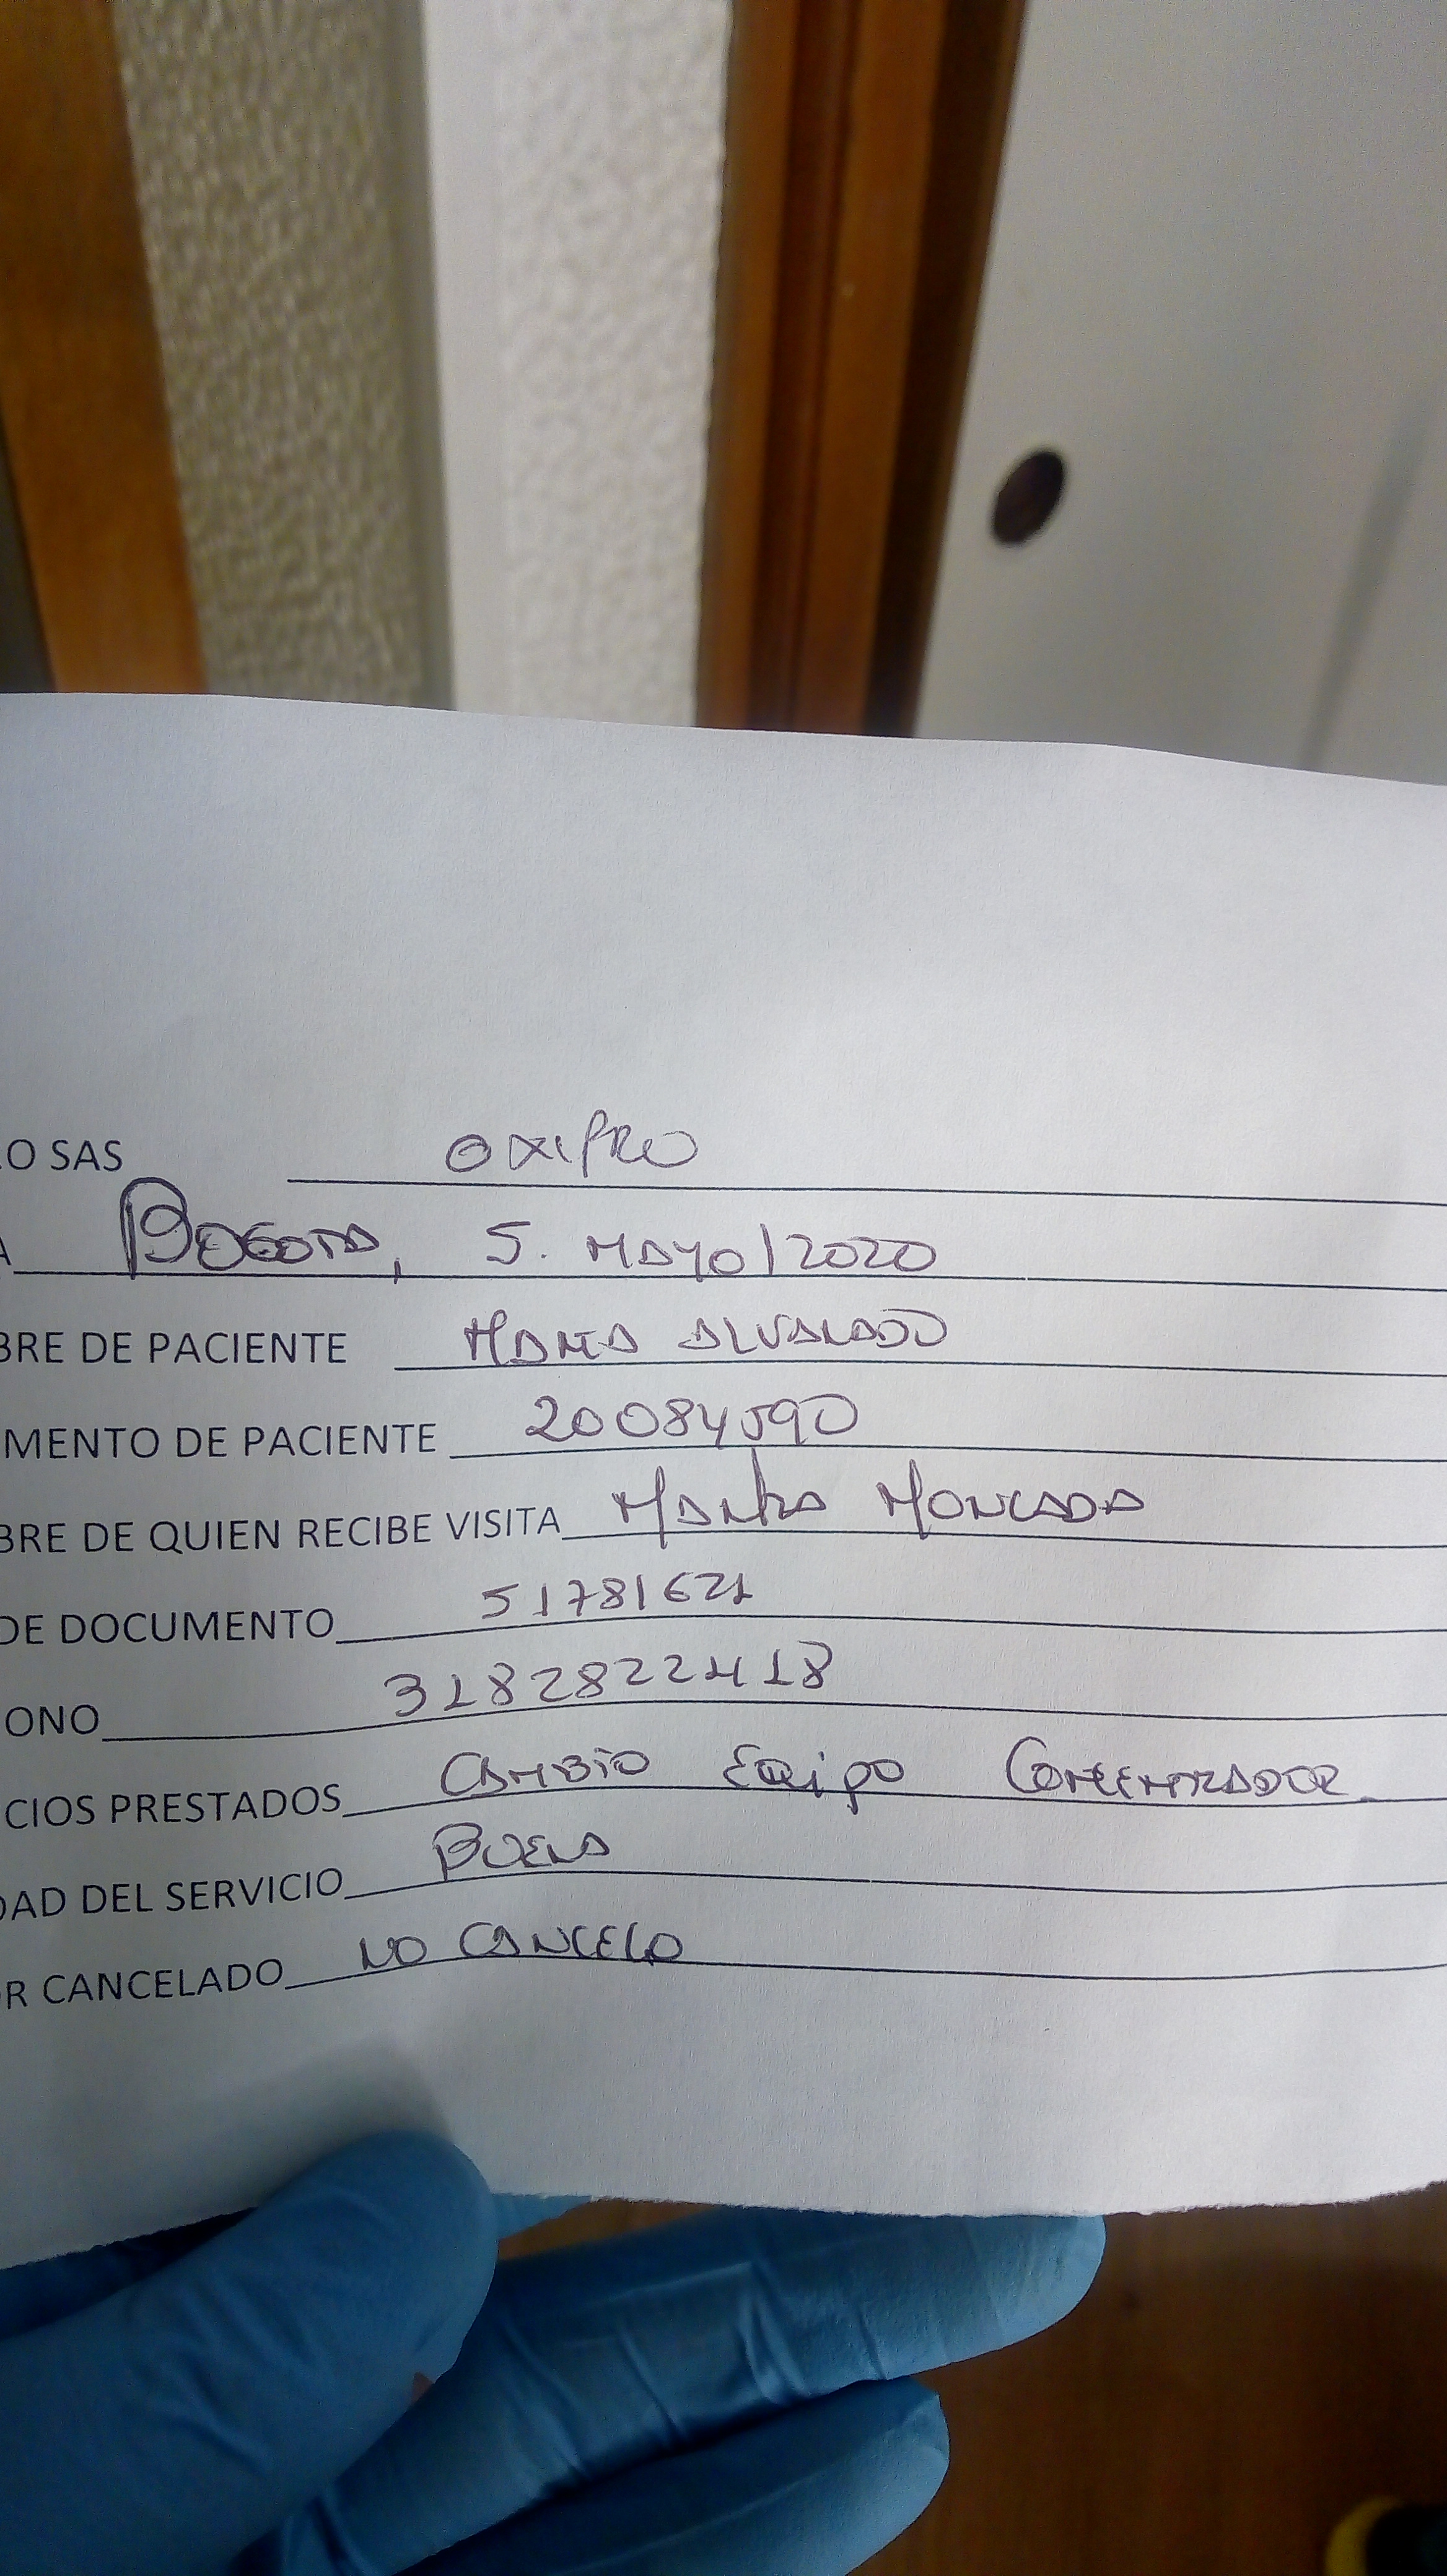 LO SAS OXIPRO
A BOGOTA, 5. MAYO/2020
BRE DE PACIENTE MARIA ALVARADO
MENTO DE PACIENTE 20084590
BRE DE QUIEN RECIBE VISITA MARTHA MONCADA
DE DOCUMENTO 51781621
ONO 3182822418
CIOS PRESTADOS CAMBIO EQUIPO CONCENTRADOR
DAD DEL SERVICIO BUENA
OR CANCELADO NO CANCELO